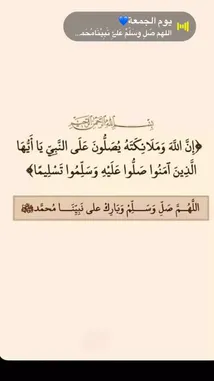 يوم الجمعة💙
اللهم صَل وسلّم على نَبينَا مُحمد...
بِسْمِ اللَّهِ الرَّحْمَٰنِ الرَّحِيمِ
﴿إِنَّ اللَّهَ وَمَلَائِكَتَهُ يُصَلُّونَ عَلَى النَّبِيِّ يَا أَيُّهَا
الَّذِينَ آمَنُوا صَلُّوا عَلَيْهِ وَسَلِّمُوا تَسْلِيمًا﴾
اللَّهُمَّ صَلِّ وَسَلِّمْ وَبَارِكْ على نَبِيِّنَا مُحمَّد ﷺ